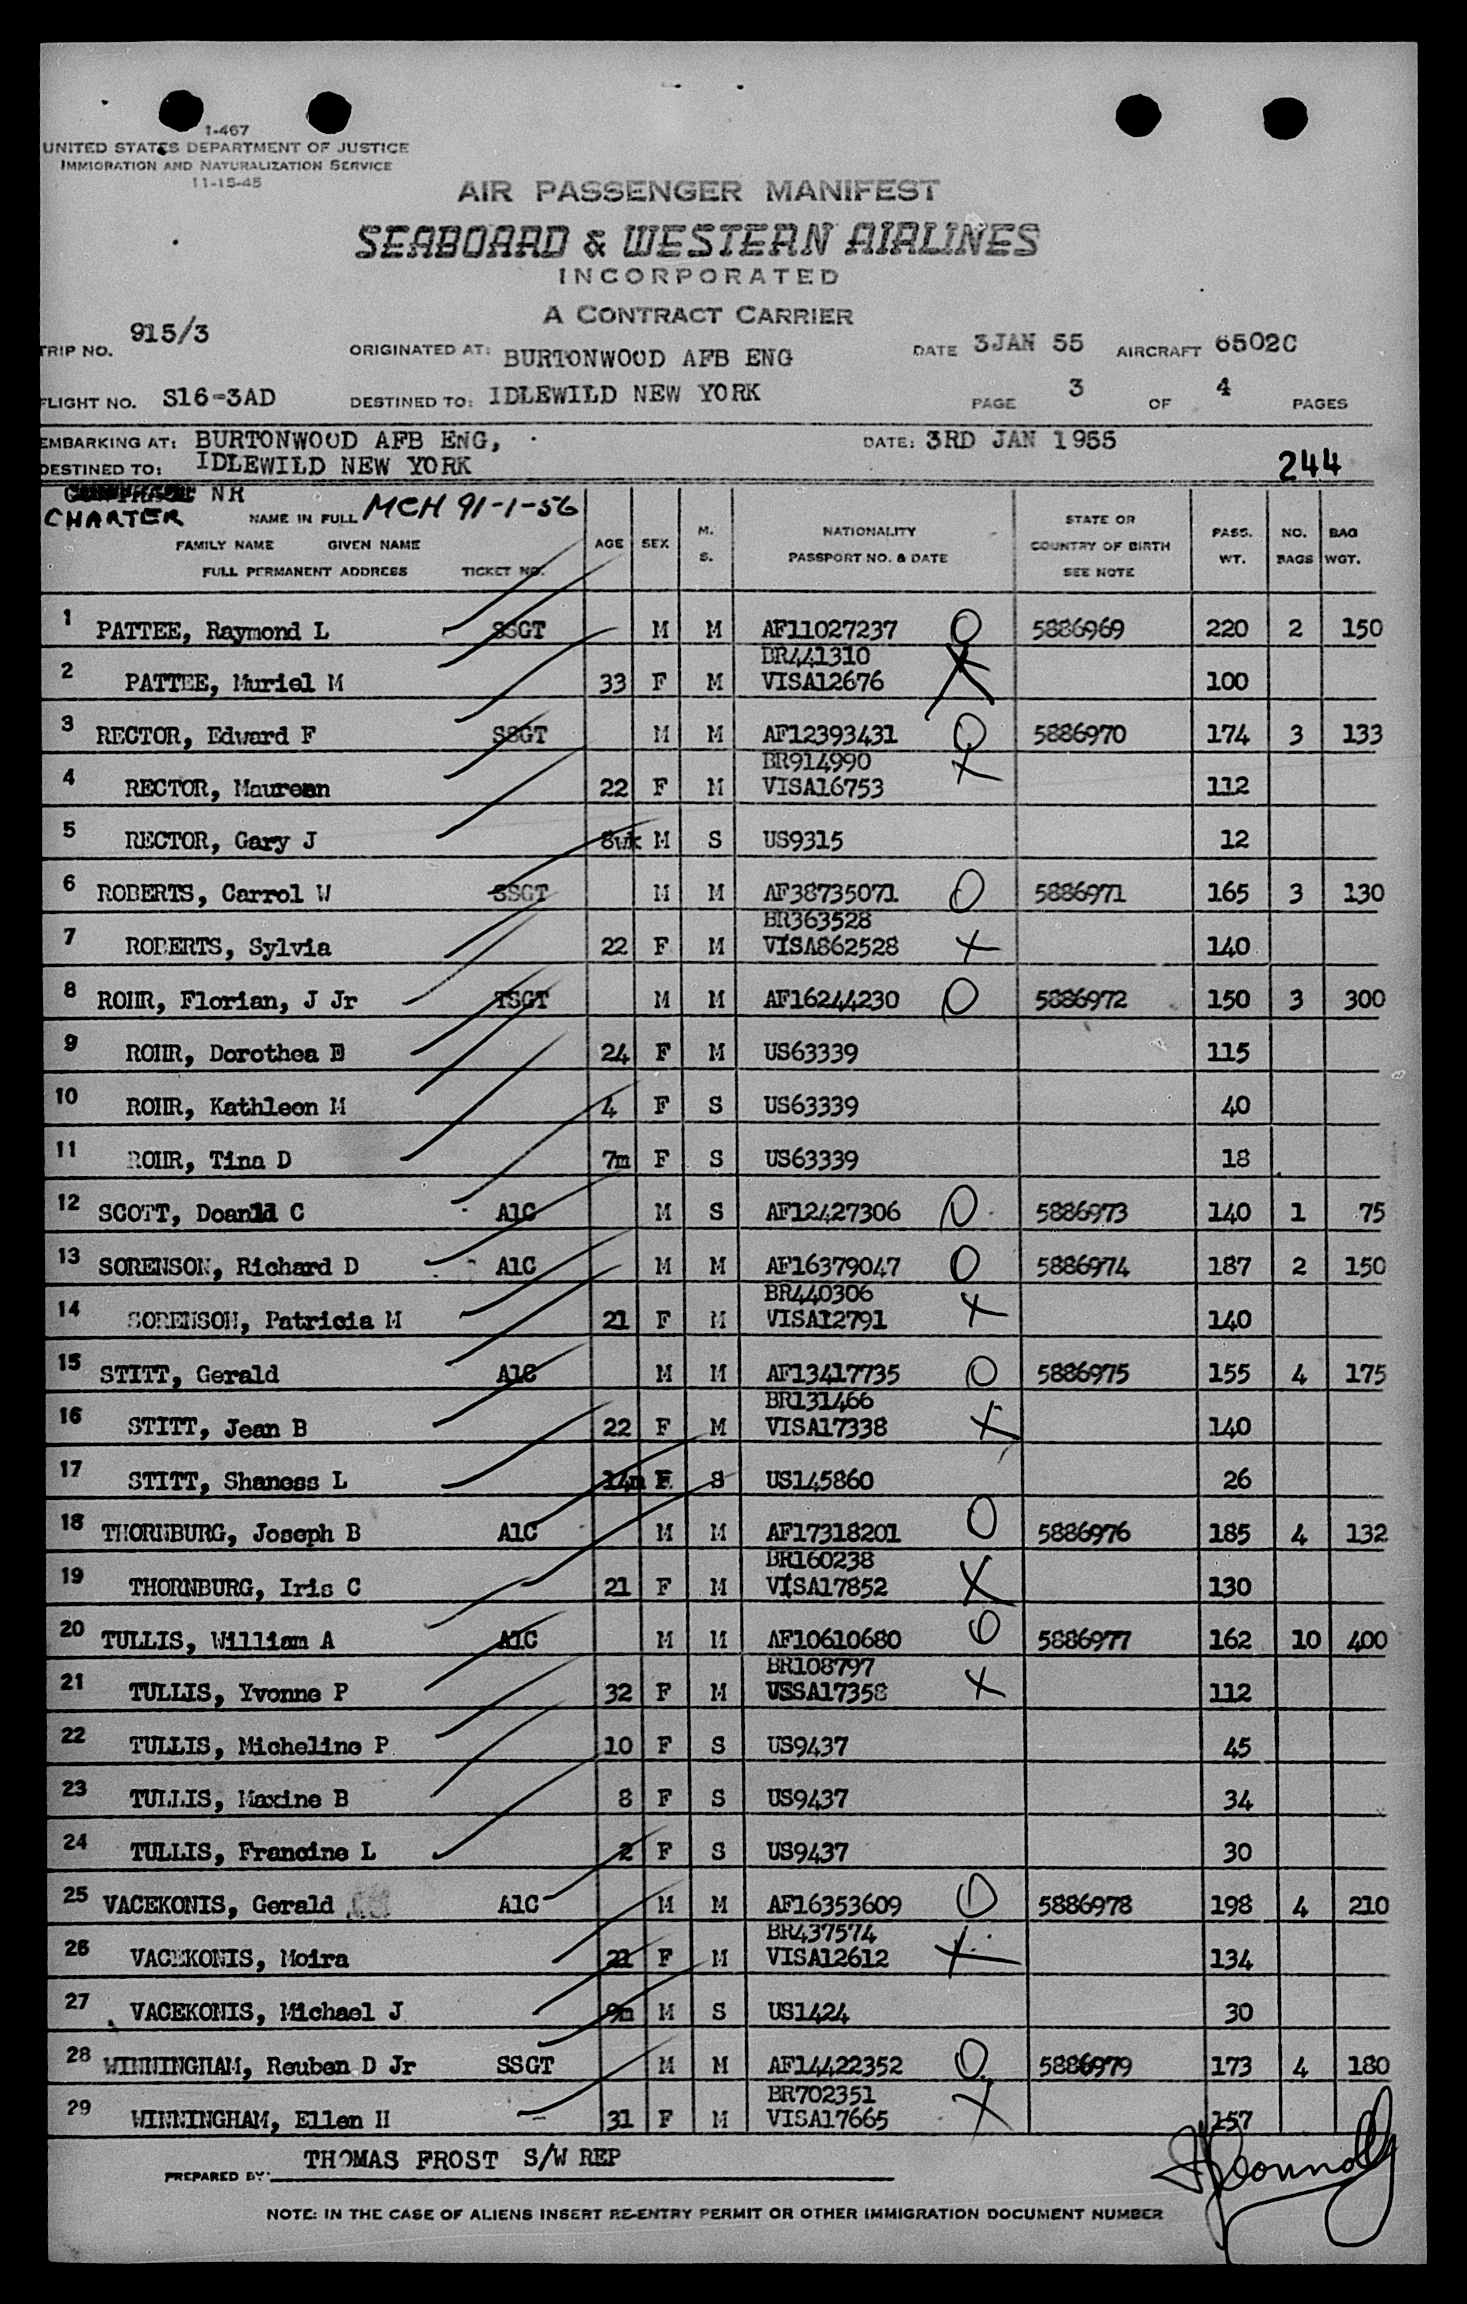 1-467
UNITED STATES DEPARTMENT OF JUSTICE
IMMIGRATION AND NATURALIZATION SERVICE
11-15-45
AIR PASSENGER MANIFEST
SEABOARD & WESTERN AIRLINES
INCORPORATED
A CONTRACT CARRIER
TRIP NO. 915/3 ORIGINATED AT: BURTONWOOD AFB ENG DATE 3JAN 55 AIRCRAFT 6502C
FLIGHT NO. S16-3AD DESTINED TO: IDLEWILD NEW YORK PAGE 3 OF 4 PAGES
EMBARKING AT: BURTONWOOD AFB ENG, DATE: 3RD JAN 1955
DESTINED TO: IDLEWILD NEW YORK 244
NR
CHARTER NAME IN FULL MCH 91-1-56
FAMILY NAME GIVEN NAME AGE SEX M. S. NATIONALITY PASSPORT NO. & DATE STATE OR COUNTRY OF BIRTH SEE NOTE PASS. WT. NO. BAGS BAG WGT.
FULL PERMANENT ADDRESS TICKET NO.
1 PATTEE, Raymond L SSGT M M AF11027237 O 5886969 220 2 150
BR441310
2 PATTEE, Muriel M 33 F M VISA12676 X 100
3 RECTOR, Edward F SSGT M M AF12393431 O 5886970 174 3 133
BR914990
4 RECTOR, Maureen 22 F M VISA16753 X 112
5 RECTOR, Gary J 8wk M S US9315 12
6 ROBERTS, Carrol W SSGT M M AF38735071 O 5886971 165 3 130
BR363528
7 ROBERTS, Sylvia 22 F M VISA862528 X 140
8 ROHR, Florian, J Jr TSGT M M AF16244230 O 5886972 150 3 300
9 ROHR, Dorothea E 24 F M US63339 115
10 ROHR, Kathleen M 4 F S US63339 40
11 ROHR, Tina D 7m F S US63339 18
12 SCOTT, Doanld C A1C M S AF12427306 O 5886973 140 1 75
13 SORENSON, Richard D A1C M M AF16379047 O 5886974 187 2 150
BR440306
14 SORENSON, Patricia M 21 F M VISA12791 X 140
15 STITT, Gerald A1C M M AF13417735 O 5886975 155 4 175
BR131466
16 STITT, Jean B 22 F M VISA17338 X 140
17 STITT, Shaness L 14m F S US145860 26
18 THORNBURG, Joseph B A1C M M AF17318201 O 5886976 185 4 132
BR160238
19 THORNBURG, Iris C 21 F M VISA17852 X 130
20 TULLIS, William A A1C M M AF10610680 O 5886977 162 10 400
BR108797
21 TULLIS, Yvonne P 32 F M VISA17358 X 112
22 TULLIS, Micheline P 10 F S US9437 45
23 TULLIS, Maxine B 8 F S US9437 34
24 TULLIS, Francine L 2 F S US9437 30
25 VACEKONIS, Gerald A1C M M AF16353609 O 5886978 198 4 210
BR437574
26 VACEKONIS, Moira 21 F M VISA12612 X 134
27 VACEKONIS, Michael J 9m M S US1424 30
28 WINNINGHAM, Reuben D Jr SSGT M M AF14422352 O 5886979 173 4 180
BR702351
29 WINNINGHAM, Ellen H 31 F M VISA17665 X 157
PREPARED BY: THOMAS FROST S/W REP
NOTE: IN THE CASE OF ALIENS INSERT RE-ENTRY PERMIT OR OTHER IMMIGRATION DOCUMENT NUMBER